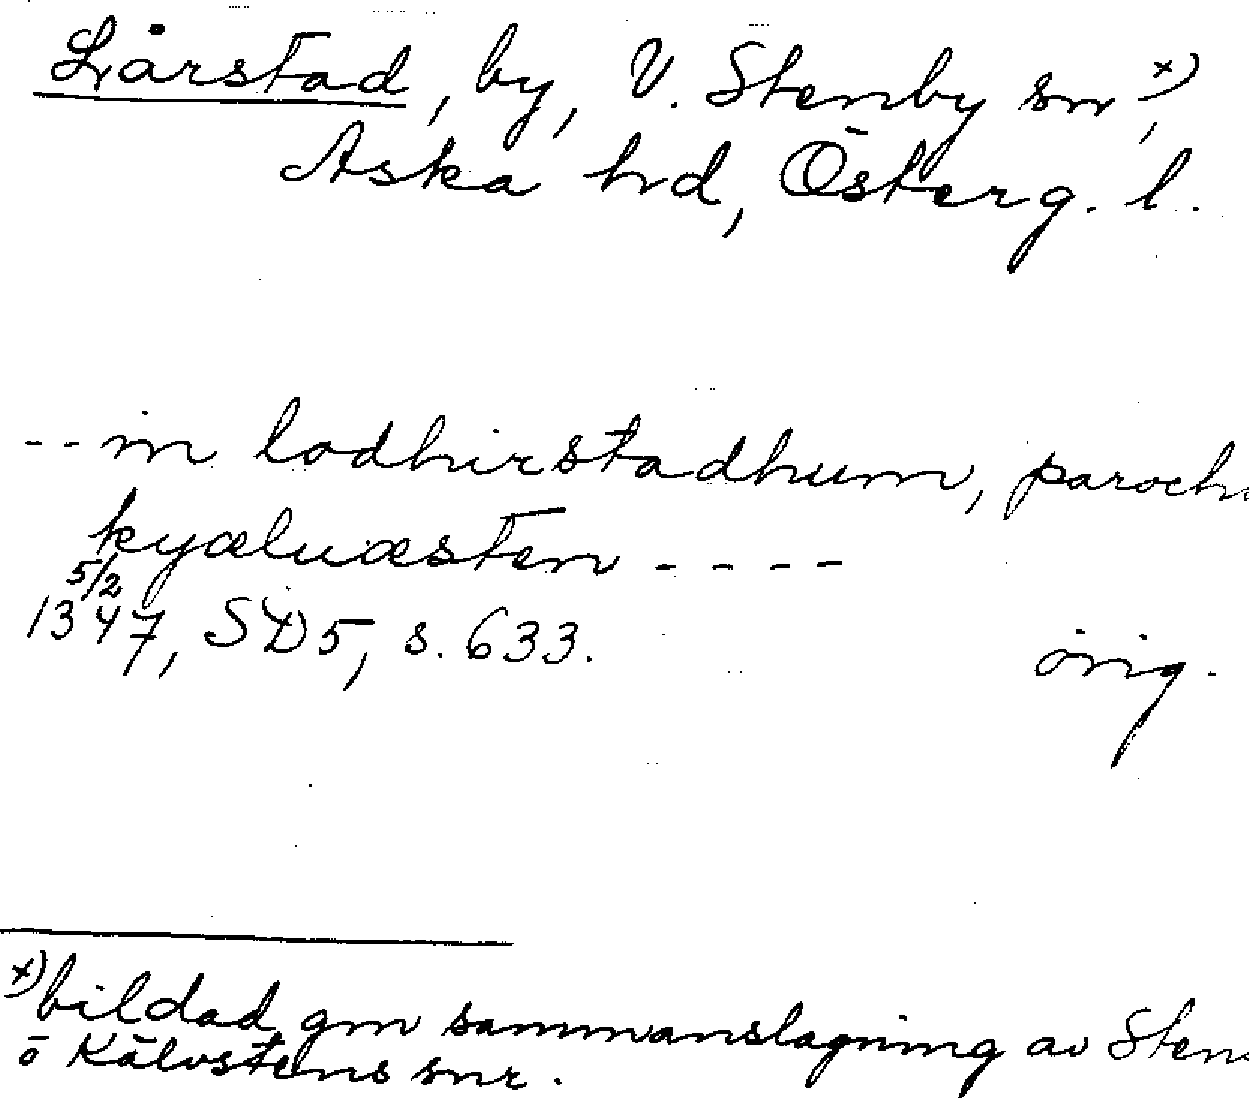 Lårstad, by, V. Stenby sn x),
Aska hd, Österg. l.
-- in lodhirstadhum, paroch
kyæluæsten ----
5/2
1347, SD5, s. 633.
orig.
x) bildad gm sammanslagning av Sten
o Kälvstens snr.